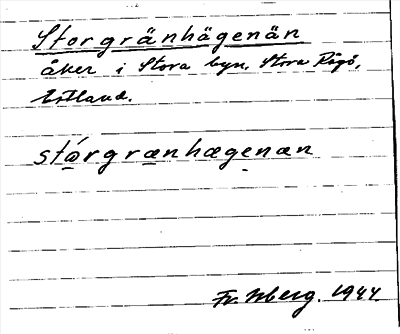 Storgränhägenän
åker i Stora byn, Stora Rågö,
Estland.
stórgrænhægenæn
Fr. Isberg. 1944.